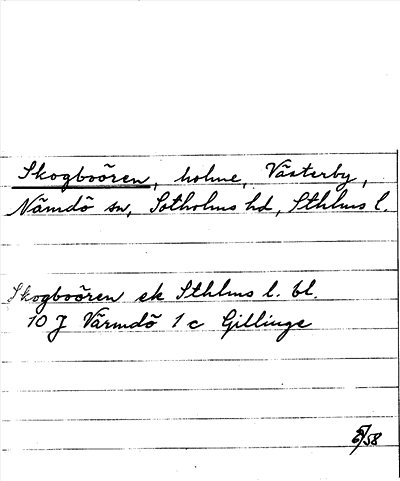 Skogboören, holme, Västerby,
Nämdö sn, Sotholms hd, Sthlms l.
Skogboören ek Sthlms l. bl.
10 J Värmdö 1 c Gillinge